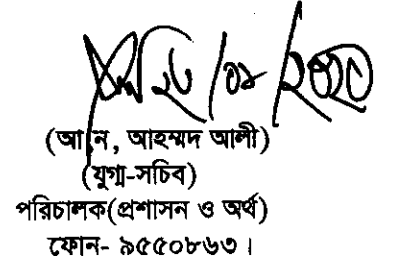 (আ, ন, আহম্মদ আলী)
(যুগ্ম-সচিব)
পরিচালক(প্রশাসন ও অর্থ)
ফোন- ৯৫৫০৮৬৩।